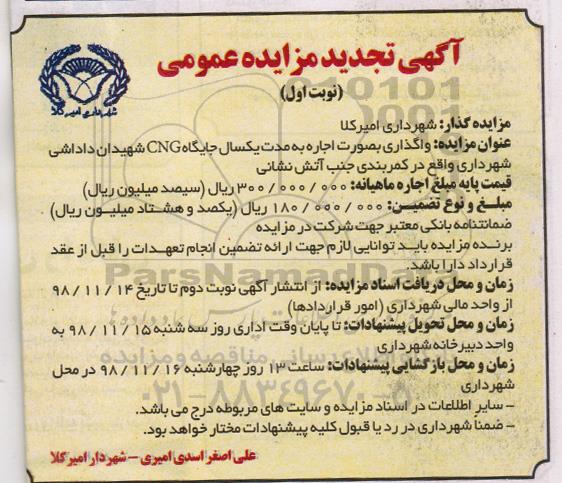 آگهی تجدید مزایده عمومی
(نوبت اول)
شهرداری امیرکلا
مزایده گذار: شهرداری امیرکلا
عنوان مزایده: واگذاری بصورت اجاره به مدت یکسال جایگاه CNG شهیدان داداشی
شهرداری واقع در کمربندی جنب آتش نشانی
قیمت پایه مبلغ اجاره ماهیانه: ۳۰۰/۰۰۰/۰۰۰ ریال (سیصد میلیون ریال)
مبلغ و نوع تضمین: ۱۸۰/۰۰۰/۰۰۰ ریال (یکصد و هشتاد میلیون ریال)
ضمانتنامه بانکی معتبر جهت شرکت در مزایده
برنده مزایده باید توانایی لازم جهت ارائه تضمین انجام تعهدات را قبل از عقد
قرارداد دارا باشد.
زمان و محل دریافت اسناد مزایده: از انتشار آگهی نوبت دوم تا تاریخ ۹۸/۱۱/۱۴
از واحد مالی شهرداری (امور قراردادها)
زمان و محل تحویل پیشنهادات: تا پایان وقت اداری روز سه شنبه ۹۸/۱۱/۱۵ به
واحد دبیرخانه شهرداری
زمان و محل بازگشایی پیشنهادات: ساعت ۱۳ روز چهارشنبه ۹۸/۱۱/۱۶ در محل
شهرداری
- سایر اطلاعات در اسناد مزایده و سایت های مربوطه درج می باشد.
- ضمنا شهرداری در رد یا قبول کلیه پیشنهادات مختار خواهد بود.
علی اصغر اسدی امیری - شهردار امیرکلا
ParsNamadData
۰۲۱-۸۸۳۴۹۶۷۰-۵